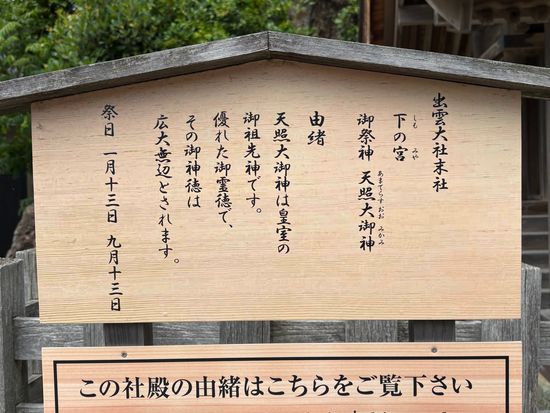 出雲大社末社
下の宮
しも みや
御祭神 天照大御神
あまてらすおおみかみ
由緒
天照大御神は皇室の
御祖先神です。
優れた御霊徳で、
その御神徳は
広大無辺とされます。
祭日 一月十三日 九月十三日
この社殿の由緒はこちらをご覧下さい